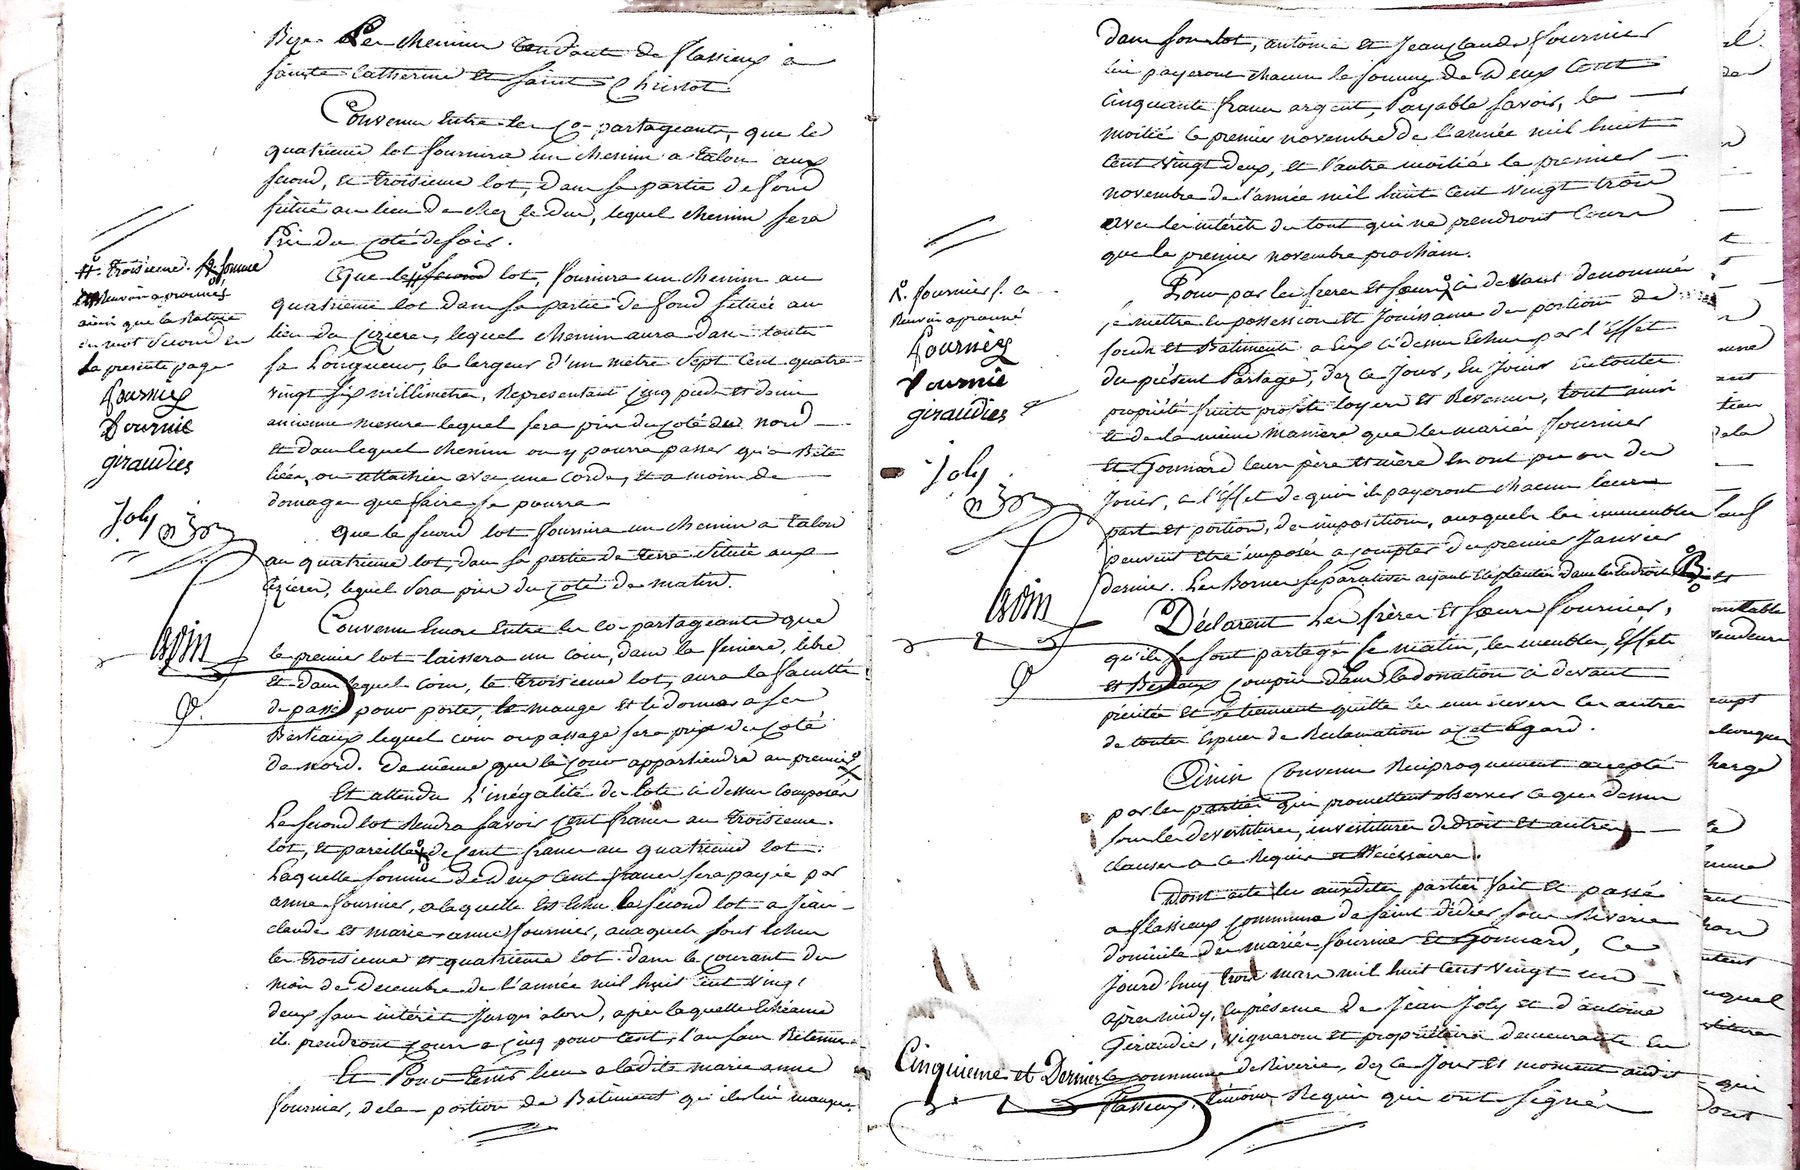 Bize. Les chemins tendant de Flassieux à
Sainte Catherine et Saint Christot
Convenu entre les co-partageants, que le
quatrieme lot fournira un chemin a talon aux
second, et troisieme lot, dans sa partie de fond
située au lieu de chez le Duc, lequel chemin sera
Pris du coté de soir.
Que le second lot, fournira un chemin au
quatrieme lot dans sa partie de fond située au
lieu du Cizieres, lequel chemin aura dans toute
sa Longueur, la largeur d'un metre sept cent quatre
vingt six millimetres, Representant cinq pieds et demi
ancienne mesure lequel sera pris du coté du nord
et dans lequel chemin on y pourra passer qu'a Bête
liées, ou attachées avec une corde, et a moins de
domages que faire se pourra
que le second lot fournira un chemin a talon
au quatrieme lot, dans sa partie de terre située aux
Cizieres, lequel sera pris du coté de matin.
Convenu encore entre les co-partageants que
le premier lot laissera un coin, dans la feniere, libre
et dans lequel coin, le troisieme lot, aura la faculté
de passer pour porter, le manger et le donner a ses
Bestiaux lequel coin ou passage sera pris du coté
de nord. De même que la cour appartiendra au premier
Et attendu L'inégalité de lots ci dessus composés
Le second lot Rendra savoir cent francs au troisieme
lot, et pareille de cent francs au quatrieme lot:
Laquelle somme de deux cent francs sera payée par
anne fournier, a laquelle est échu le second lot a Jean
claude et marie-anne fournier, auxquels sont échus
les troisieme et quatrieme lot dans le courant du
mois de Decembre de l'année mil huit cent vingt
deux sans intérêts jusqu'alors, après laquelle Echéance
ils prendront cours a cinq pour cent, l'an sans Retenue
Et Pour tenir lieu a ladite marie anne
fournier, de la portion de Batiment qui lui manque
troisieme. somme
Renvois aprouvés
ainsi que la Rature
du mot second en
La presente page
fournier
Fournié
giraudies
Joly
dans son lot, antoine et Jean claude fournier
lui payeront chacun la somme de deux Cent
Cinquante francs argent, Payable savoir, la
moitié le premier novembre de l'année mil huit
Cent vingt deux, et l'autre moitié le premier
novembre de l'année mil huit Cent vingt trois
avec les intérêts du tout qui ne prendront Cours
que le premier novembre prochain.
Pour par les freres et sœurs ci devant denommés
se mettre en possession et jouissance des portions de
fonds et Batiments a eux ci dessus Echus par l'Effet
du présent Partage, dez ce Jour, En Jouir en toute
propriété fruits profits loyers et Revenus, tout ainsi
et de la même maniere que les mariés fournier
et Gonnard leurs père et mère en ont pu ou du
Jouir, a l'Effet de quoi ils payeront chacun leurs
part et portion, des impositions, auxquels les immeubles
peuvent être imposés a compter du premier Janvier
dernier. Les Bornes séparatives ayant été plantées dans les Endroits
Déclarent Les frères et sœurs fournier,
qu'ils se sont partagé ce matin, les meubles, Effets
et Bestiaux compris dans la donation ci devant
récitée et se tiennent quitte les uns envers les autres
de toutes especes de Reclamations a cet égard.
Ainsi Convenu Réciproquement accepté
par les parties qui promettent observer ce que dessus
sous les devestitures, investitures de droit et autres
clauses a ce Requises et nécéssaires.
Dont acte les auxdites parties fait et passé
a flassieux commune de saint didier sous Riverie
domicile des mariés fournier et Gonnard, Ce
Jourd'huy trois mars mil huit Cent vingt un
après midy, en présence de Jean Joly et d'antoine
Giraudier, vignerons et propriétaires demeurants en
la commune de Riverie, dez ce Jour et moment audit
flassieux, témoins Requis qui ont signés
fournier s. a
Renvoi aprouvé
fournier
Fournié
giraudies
Joly
Cinquieme et Dernier